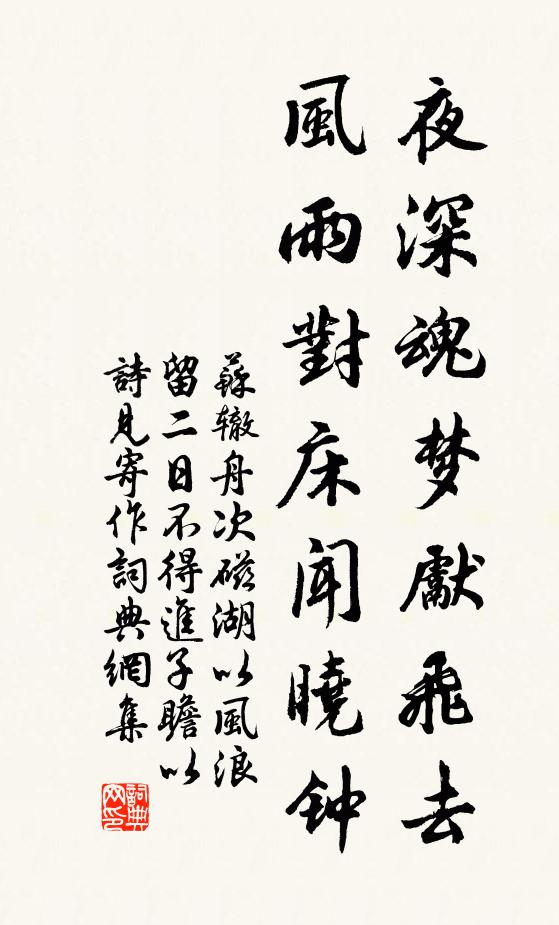 夜深魂梦獻飛去
風雨對床聞曉钟
蘇辙舟次磁湖以風浪
留二日不得進子瞻以
詩見寄作詞典網集
詞典
网印